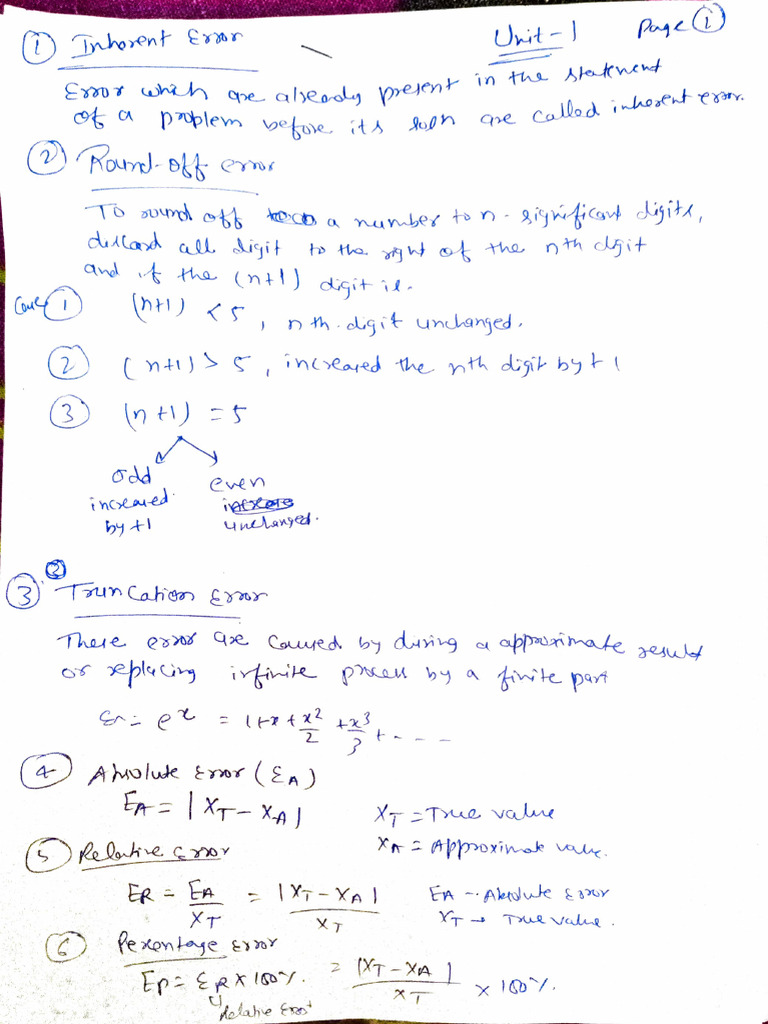 Unit-1 Page ①
① Inherent Error
Error which are already present in the statement
of a problem before its soln are called inherent error.
② Round-off error
To round off a number to n-significant digits,
discard all digit to the right of the nth digit
and if the (n+1) digit is.
Case ① (n+1) < 5, nth digit unchanged.
② (n+1) > 5, increased the nth digit by +1
③ (n+1) = 5
odd even
increased unchanged.
by +1
③ Truncation Error
These error are caused by during a approximate result
or replacing infinite process by a finite part
e^x = 1+x+x²/2+x³/3+----
④ Absolute Error (EA)
EA = |XT-XA| XT = True value
XA = Approximate value.
⑤ Relative Error
ER = EA/XT = |XT-XA|/XT EA → Absolute Error
XT → True value.
⑥ Percentage Error
EP = ER×100%. = |XT-XA|/XT × 100%.
Relative Error